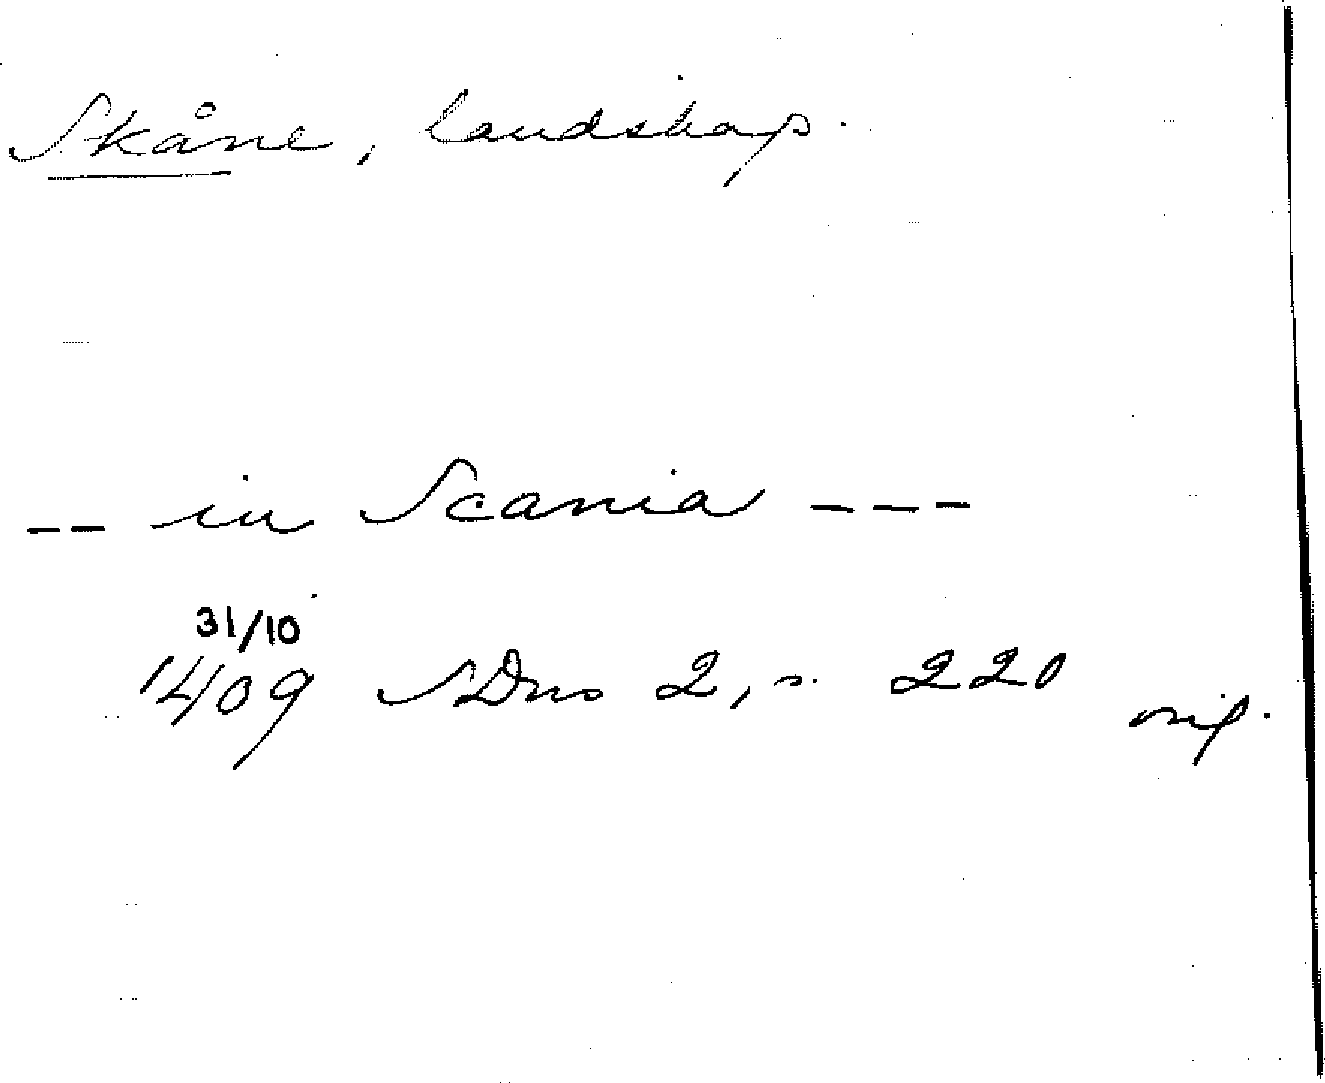 Skåne, landskap.
-- in Scania ---
31/10
1409 SDns 2, s. 220
orig.